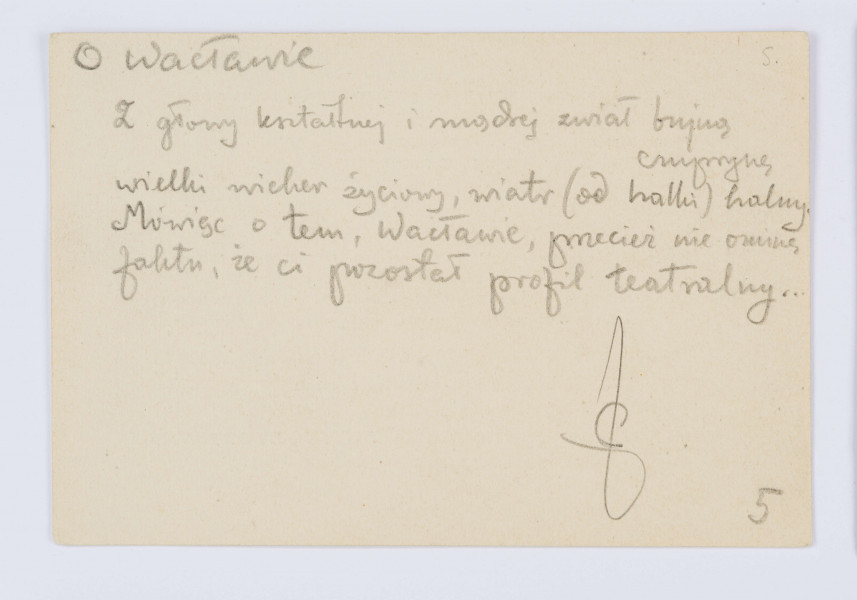 O Wacławie
5.
Z głowy kształtnej i mądrej zwiał bujną
czuprynę
wielki wicher życiowy, wiatr (od halki) halny.
Mówiąc o tem, Wacławie, przecież nie ominę
faktu, że ci pozostał profil teatralny...
5